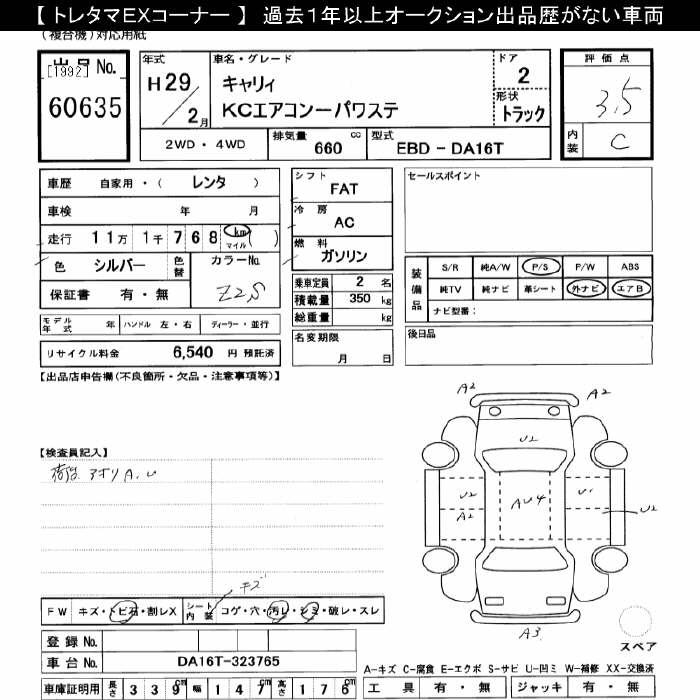 【 トレタマEXコーナー 】 過去1年以上オークション出品歴がない車両
(複合機)対応用紙
出品 No.
[1992]
60635
年式
H29/2月
車名・グレード
キャリィ
KCエアコンーパワステ
ドア
2
形状
トラック
評価点
3.5
内装
C
2WD・4WD
排気量 660 cc
型式 EBD - DA16T
車歴 自家用・( レンタ )
車検 年 月
走行 11万 1千 7 6 8 km マイル ( )
色 シルバー 色替
カラーNo.
Z2S
保証書 有・無
モデル年式 年 ハンドル 左・右 ディーラー・並行
リサイクル料金 6,540 円 預託済
シフト
FAT
冷房
AC
燃料
ガソリン
乗車定員 2 名
積載量 350 kg
総重量 kg
名変期限
月 日
セールスポイント
装備品
S/R 純A/W P/S P/W ABS
純TV 純ナビ 革シート 外ナビ エアB
ナビ型番:
後日品
【出品店申告欄(不良箇所・欠品・注意事項等)】
【検査員記入】
アオリ A.U
A2
A2
U2
U2
A2
AU4
U1
U2
A3
スペア
キズ
FW キズ・トビ石・割レX シート内装 コゲ・穴・汚レ・シミ・破レ・スレ
登録 No.
車台 No. DA16T-323765
車庫証明用 長さ 339cm 幅 147cm 高さ 176cm
A-キズ C-腐食 E-エクボ S-サビ U-凹ミ W-補修 XX-交換済
工具 有・無 ジャッキ 有・無